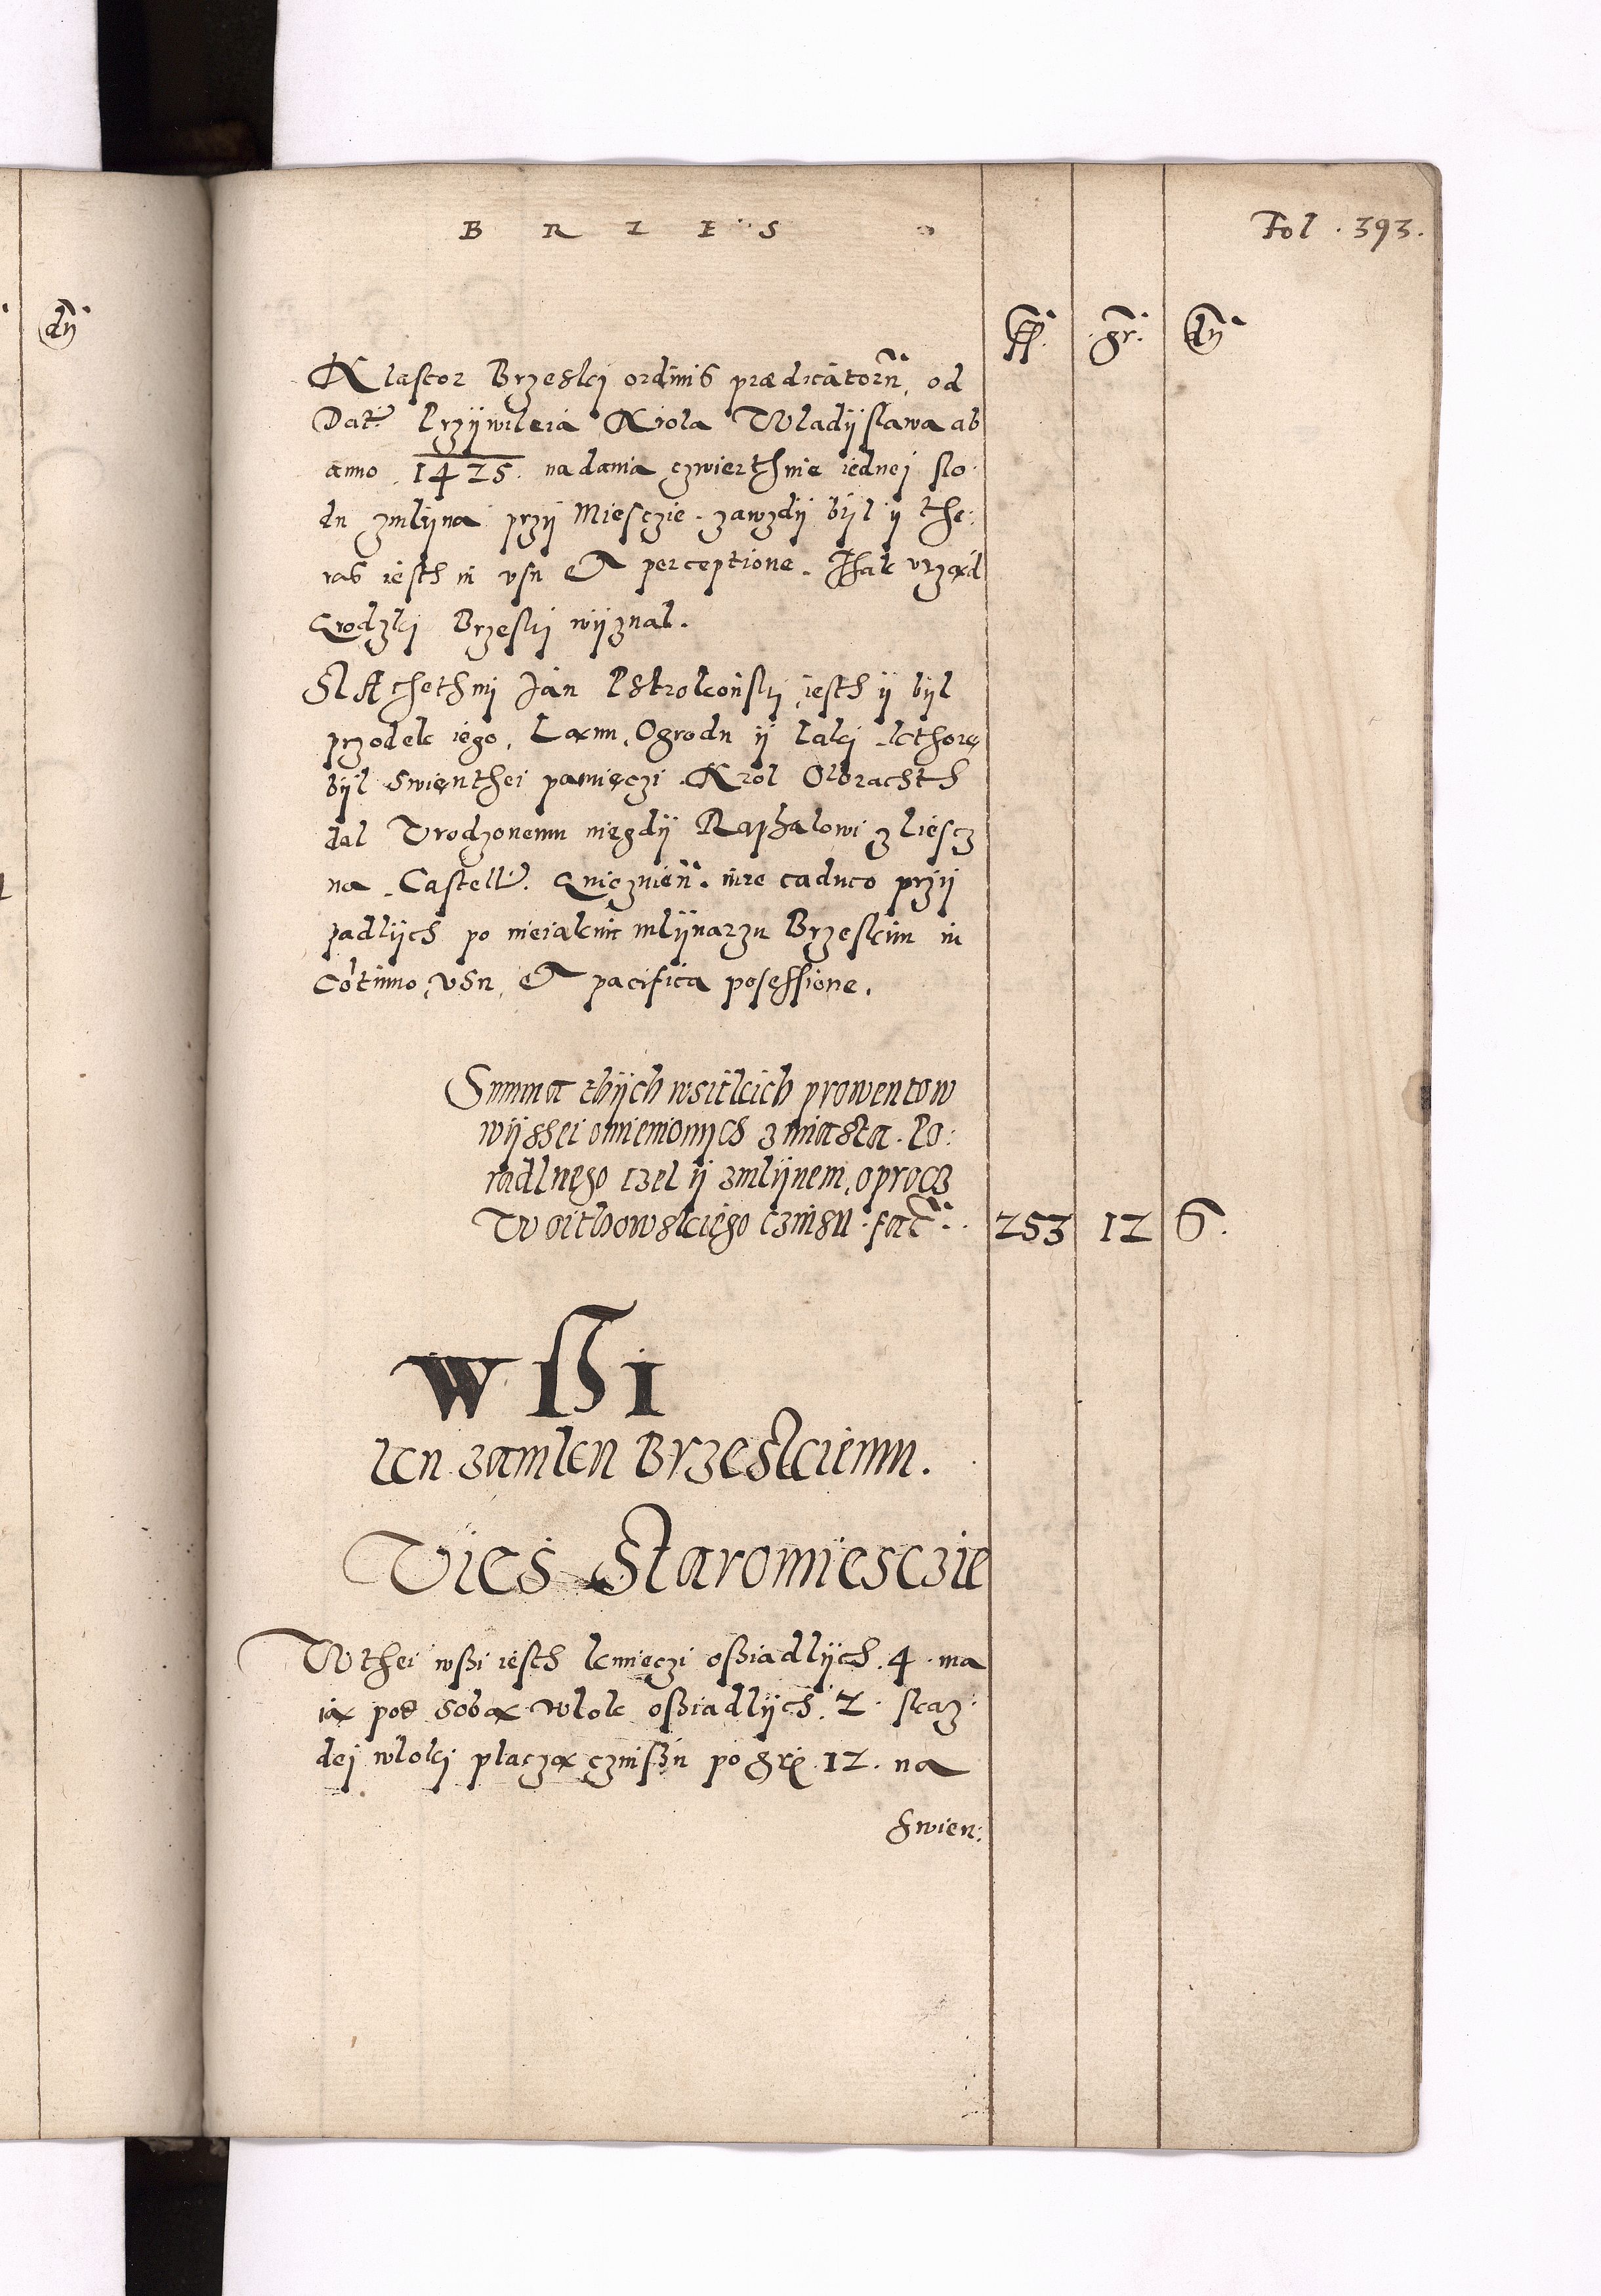 B R Z E S
Fol . 393.
fl. gr. dn
dn
Klastor Brzeskj ordinis prædicatorũ, od
Dat. Przijwileia Krola Wladijslawa ab
anno .1425. nadania czwierthnie iednej slo:
du zmlijna przij Miesczie. zawzdij bijl ij the:
ras iesth in vsu et perceptione. Jsak vrząd
Grodzkj Brzeskj wijznal.
SlAchethnj Jan Pstrokoński, iesth ij bijl
przodek iego, Łanu, Ogrodu ij Łąkj, kthorę
bijl swięnthei pamięczi Krol Olbrachth
dal Vrodzonemu niegdij Raphalowi z Liescz
na Castell. Gnieznieñ. iure caduco przij
padlijch po nieiakim mlijnarzu Brzeskim in
cõtinuo vsu, et pacifica posessione.
Summa thijch wsitkich prowentow
wijssei omienionijch z miasta. Po:
radlnego czel ij zmlijnem, oprocz
Woithowskiego czinsu. facit. 253 12 6.
Wssi
ku zamku Brzeskiemu.
Vies Staromiesczie
Wthei wssi iesth kmieczi ossiadlijch .4. ma
ią pod sobą wlok ossiadlijch. 2. skaz
dej wlokj placzą czinssu po gr. 12. na
swien: